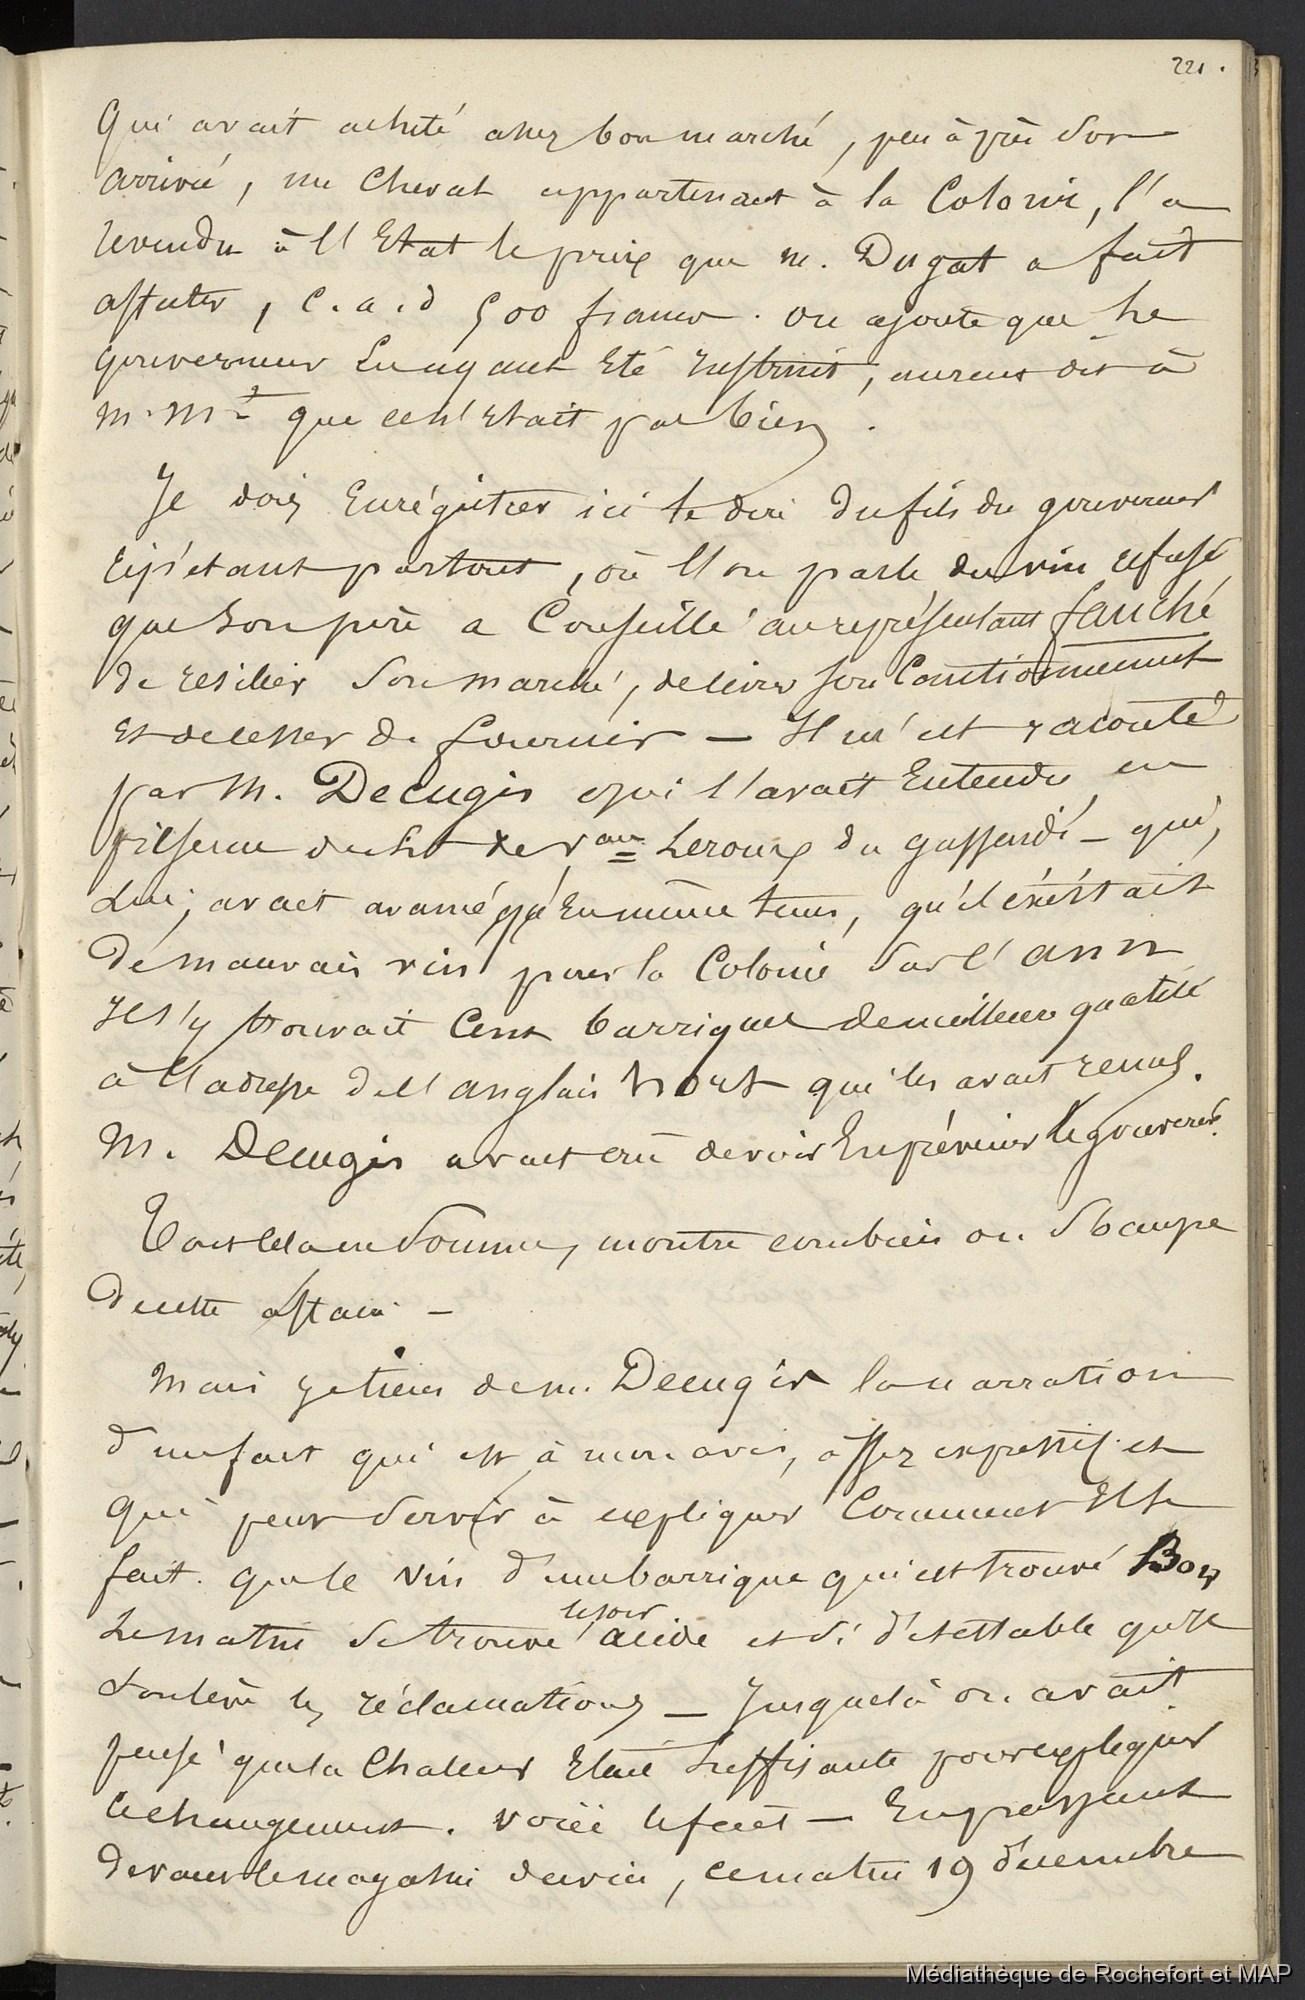 221.
qui avait acheté assez bon marché, peu après son
arrivée, un cheval appartenant à la Colonie, l'a
revendu à l'Etat le prix que m. Dugat a fait
affecter, c.a.d 500 francs. on ajoute que le
gouverneur En ayant Eté Instruit, aurait dit à
m. Mt que ce n'Etait pas bien.
Je dois Enrégistrer ici le dire du fils du gouverneur
répétant partout, où l'on parle du vin refusé
que son père a Conseillé au représentant fauché
de resilier son marché, de lever son Cautionnement
Et de cesser de fournir — Il m'est raconté
par M. Decugis qui l'avait Entendu en
présence du Lt de vau Leroux du gassendi — qui,
Lui, avait avancé qu'En même tems, qu'il éxistait
De mauvais vin pour la Colonie sur l'ann
Il s'y trouvait Cent barriques de meilleure qualité
à l'adresse de l'anglais hort qui les avait refusés.
M. Decugis avait crû devoir En prévenir le gouverneur.
Tout cela en somme, montre combien on s'occupe
De cette affaire —
Mais je tiens de m. Decugis la narration
d'un fait qui est à mon avis, assez expressif et
qui peut servir à expliquer Comment Il se
fait que le vin d'une barrique qui est trouvé Bon
Le matin se trouve le soir acide et si détestable qu'Il
soulève les réclamations — Jusque là on avait
pensé que la Chaleur Etait suffisante pour expliquer
le changement. voici le fait — En passant
devant le magasin du vin, ce matin 19 décembre
Médiathèque de Rochefort et MAP